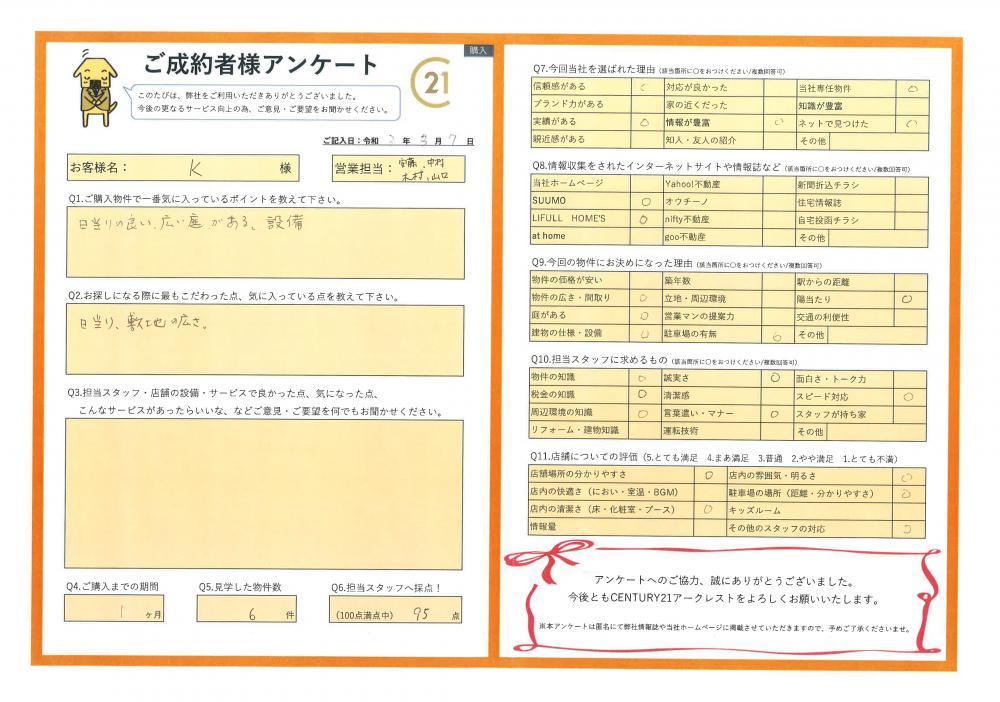 購入
ご成約者様アンケート
21
このたびは、弊社をご利用いただきありがとうございました。
今後の更なるサービス向上の為、ご意見・ご要望をお聞かせください。
ご記入日：令和 2 年 3 月 7 日
お客様名： K 様
営業担当： 安藤、中村
木村、山口
Q1.ご購入物件で一番気に入っているポイントを教えて下さい。
日当りの良い、広い庭がある、設備
Q2.お探しになる際に最もこだわった点、気に入っている点を教えて下さい。
日当り、敷地の広さ。
Q3.担当スタッフ・店舗の設備・サービスで良かった点、気になった点、
こんなサービスがあったらいいな、などご意見・ご要望を何でもお聞かせください。
Q4.ご購入までの期間
1 ヶ月
Q5.見学した物件数
6 件
Q6.担当スタッフへ採点！
(100点満点中) 95 点
Q7.今回当社を選ばれた理由（該当箇所に〇をおつけください/複数回答可）
信頼感がある ○ 対応が良かった 当社専任物件 ○
ブランド力がある 家の近くだった 知識が豊富
実績がある ○ 情報が豊富 ○ ネットで見つけた ○
親近感がある 知人・友人の紹介 その他
Q8.情報収集をされたインターネットサイトや情報誌など（該当箇所に〇をおつけください/複数回答可）
当社ホームページ Yahoo!不動産 新聞折込チラシ
SUUMO ○ オウチーノ 住宅情報誌
LIFULL HOME'S ○ nifty不動産 自宅投函チラシ
at home goo不動産 その他
Q9.今回の物件にお決めになった理由（該当箇所に〇をおつけください/複数回答可）
物件の価格が安い 築年数 駅からの距離
物件の広さ・間取り ○ 立地・周辺環境 陽当たり ○
庭がある ○ 営業マンの提案力 交通の利便性
建物の仕様・設備 ○ 駐車場の有無 ○ その他
Q10.担当スタッフに求めるもの（該当箇所に〇をおつけください/複数回答可）
物件の知識 ○ 誠実さ ○ 面白さ・トーク力
税金の知識 ○ 清潔感 スピード対応 ○
周辺環境の知識 ○ 言葉遣い・マナー ○ スタッフが持ち家
リフォーム・建物知識 運転技術 その他
Q11.店舗についての評価（5.とても満足 4.まあ満足 3.普通 2.やや満足 1.とても不満）
店舗場所の分かりやすさ ○ 店内の雰囲気・明るさ ○
店内の快適さ（におい・室温・BGM） 駐車場の場所（距離・分かりやすさ） ○
店内の清潔さ（床・化粧室・ブース） ○ キッズルーム
情報量 その他のスタッフの対応 ○
アンケートへのご協力、誠にありがとうございました。
今後ともCENTURY21アークレストをよろしくお願いいたします。
※本アンケートは匿名にて弊社情報誌や当社ホームページに掲載させていただきますので、予めご了承くださいませ。